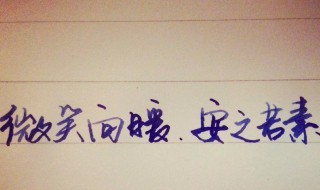 微笑向暖.安之若素